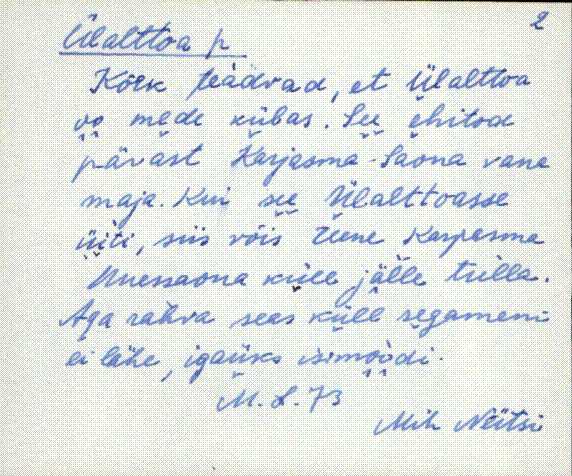 2
Ülalttoa p
Kõik teadvad, et Ülalttoa
va mede kübas. See ehitod
pärast Karjasma-Saona vane
maja. Kui see Ülalttoasse
üiti, siis võis Karjasma
küll jälle tulla.
Aga rahva seas küll segameni
ei lähe, igaüks isimoodi.
M. L. 73
Mih Neitsi